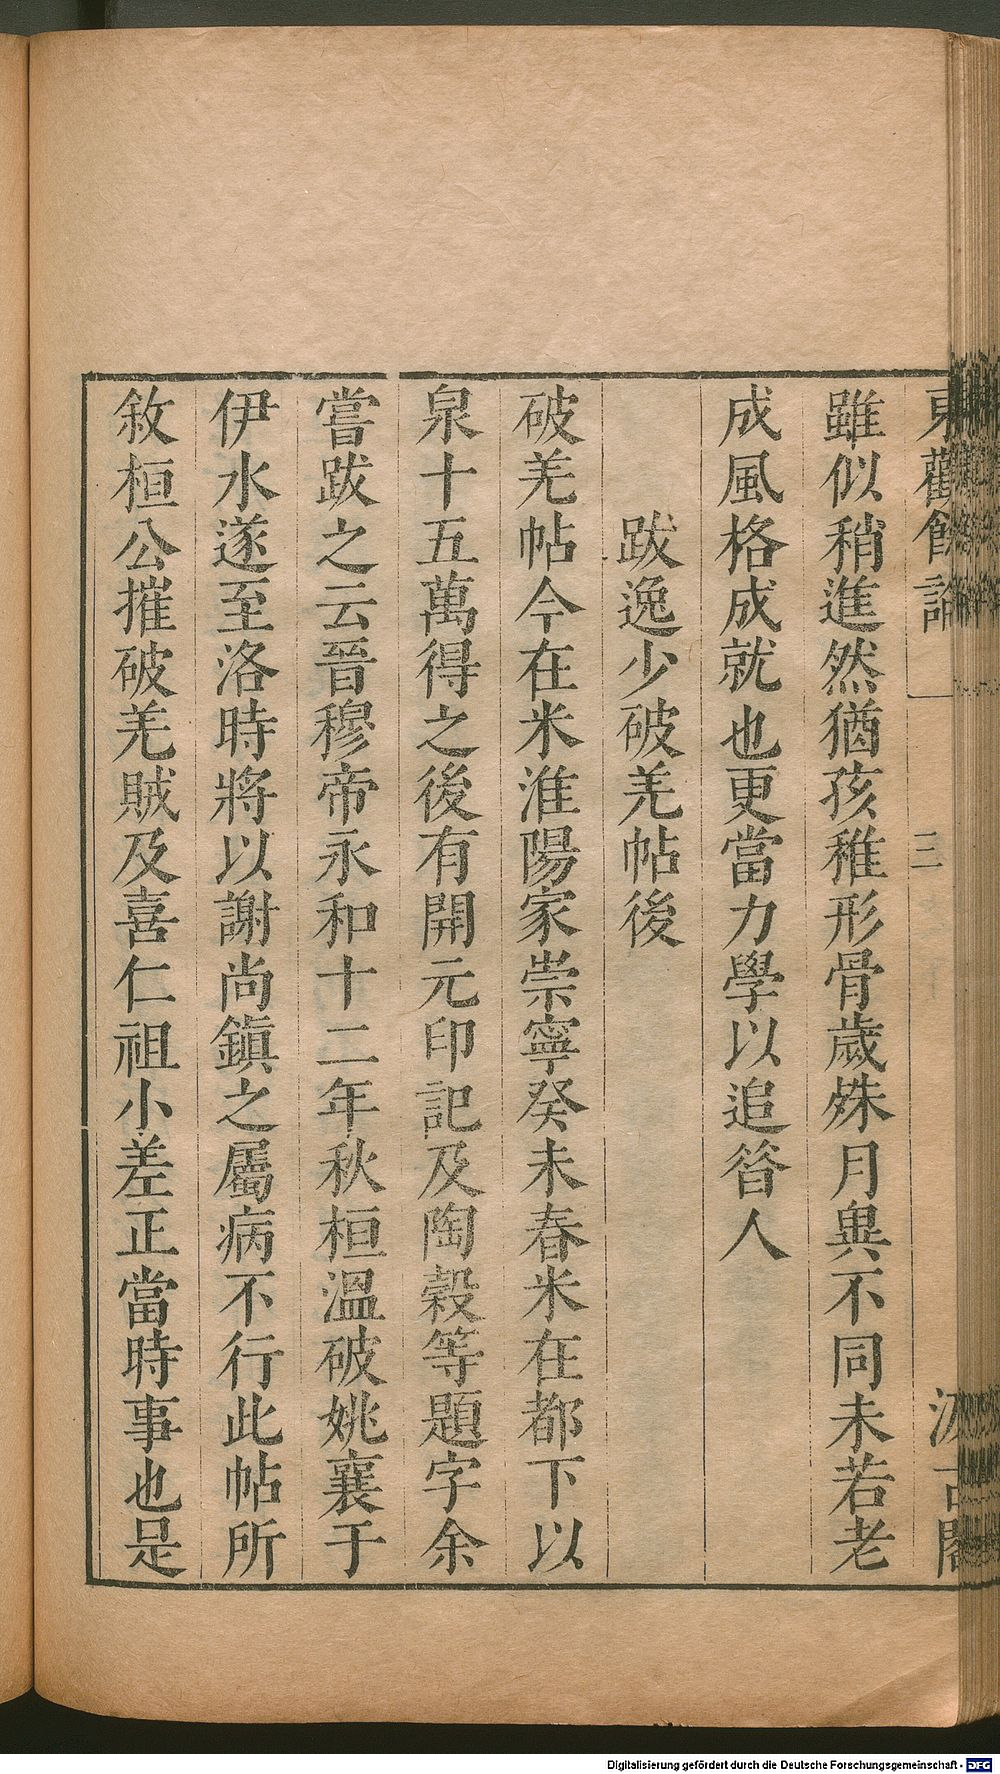 東觀餘論
三
汲古閣
雖似稍進然猶孩稚形骨歲殊月異不同未若老
成風格成就也更當力學以追昝人
跋逸少破羌帖後
破羌帖今在米淮陽家崇寧癸未春米在都下以
泉十五萬得之後有開元印記及陶穀等題字余
嘗跋之云晉穆帝永和十二年秋桓溫破姚襄于
伊水遂至洛時將以謝尚鎮之屬病不行此帖所
敘桓公摧破羌賊及喜仁祖小差正當時事也是
Digitalisierung gefördert durch die Deutsche Forschungsgemeinschaft - DFG